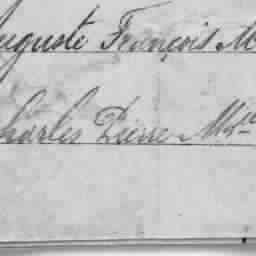 Auguste François M
Charles Pierre